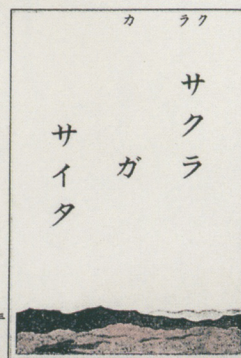 クラ カ
サクラ
ガ
サイタ